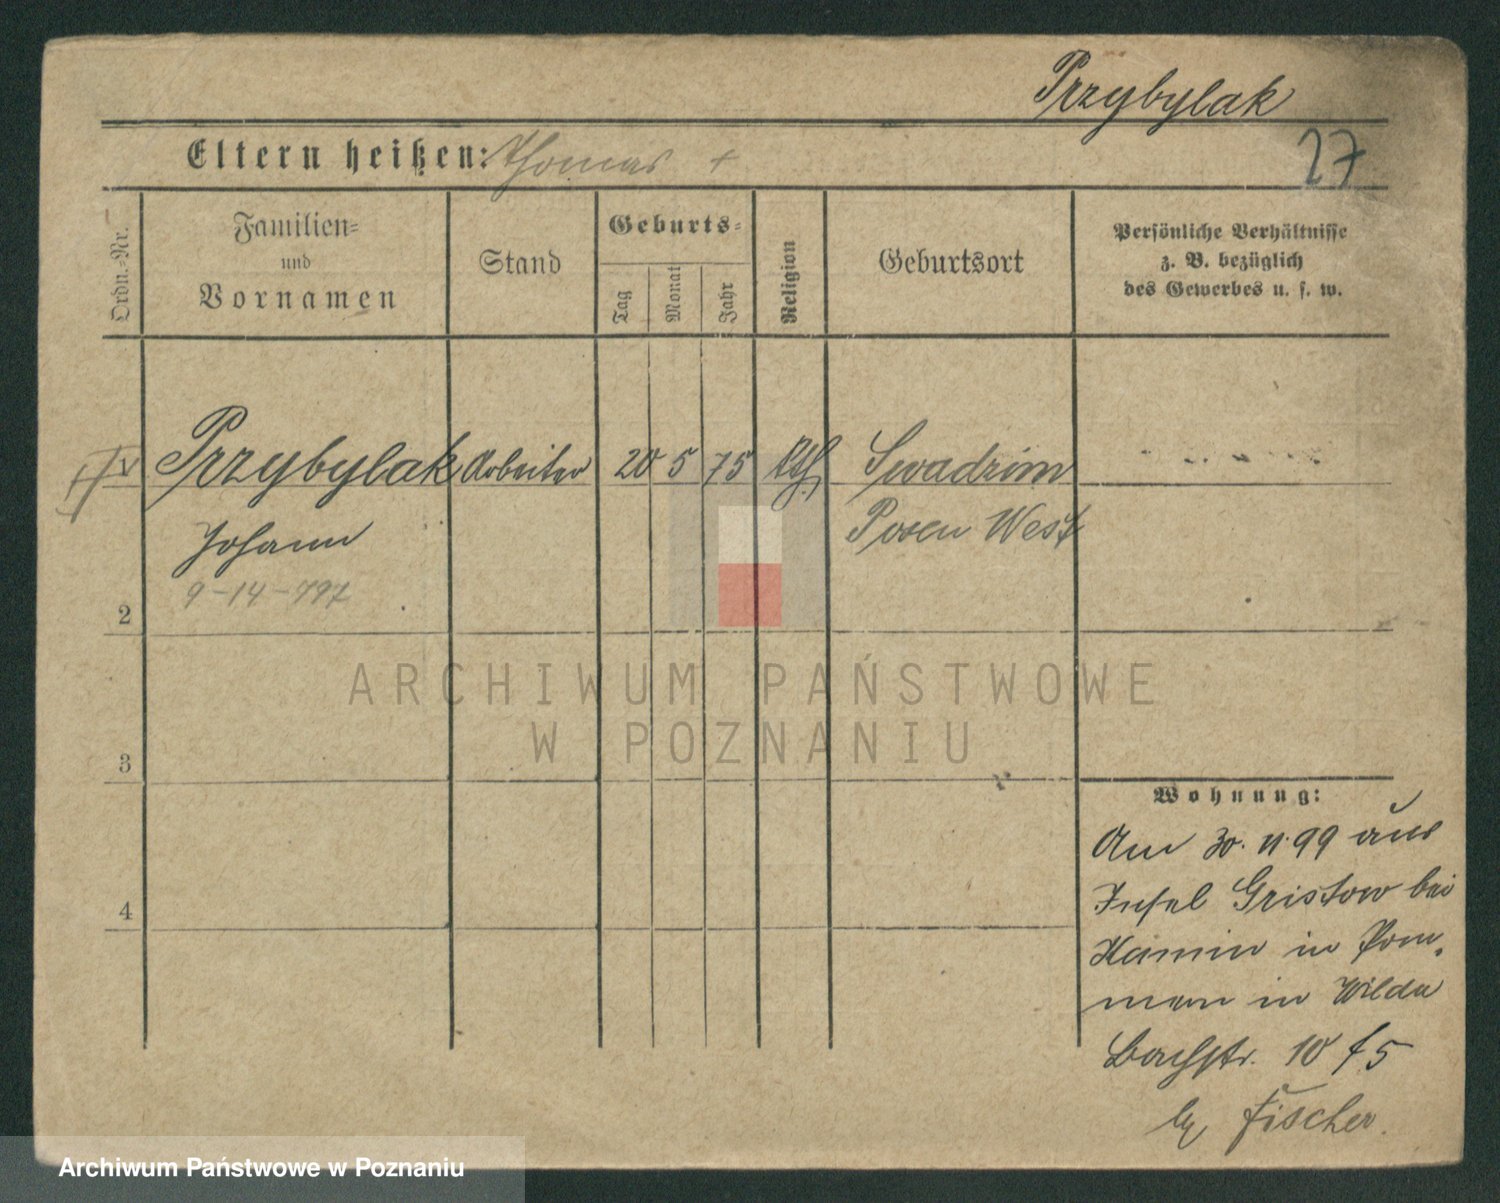 Przybylak
27
Eltern heißen: Thomas +
Ordn.-Nr.
Familien-
und
Vornamen
Stand
Geburts-
Tag
Monat
Jahr
Religion
Geburtsort
Persönliche Verhältnisse
z. B. bezüglich
des Gewerbes u. s. w.
Przybylak Arbeiter 20 5 75 kth Swadzim
Johann Posen West
9-14-797
2
ARCHIWUM PAŃSTWOWE
W POZNANIU
3
Wohnung:
Am 30.11.99 aus
Insel Gristow bei
Kamin in Pom-
mern in Wilda
Bachstr. 10 f5
Fischer.
4
Archiwum Państwowe w Poznaniu